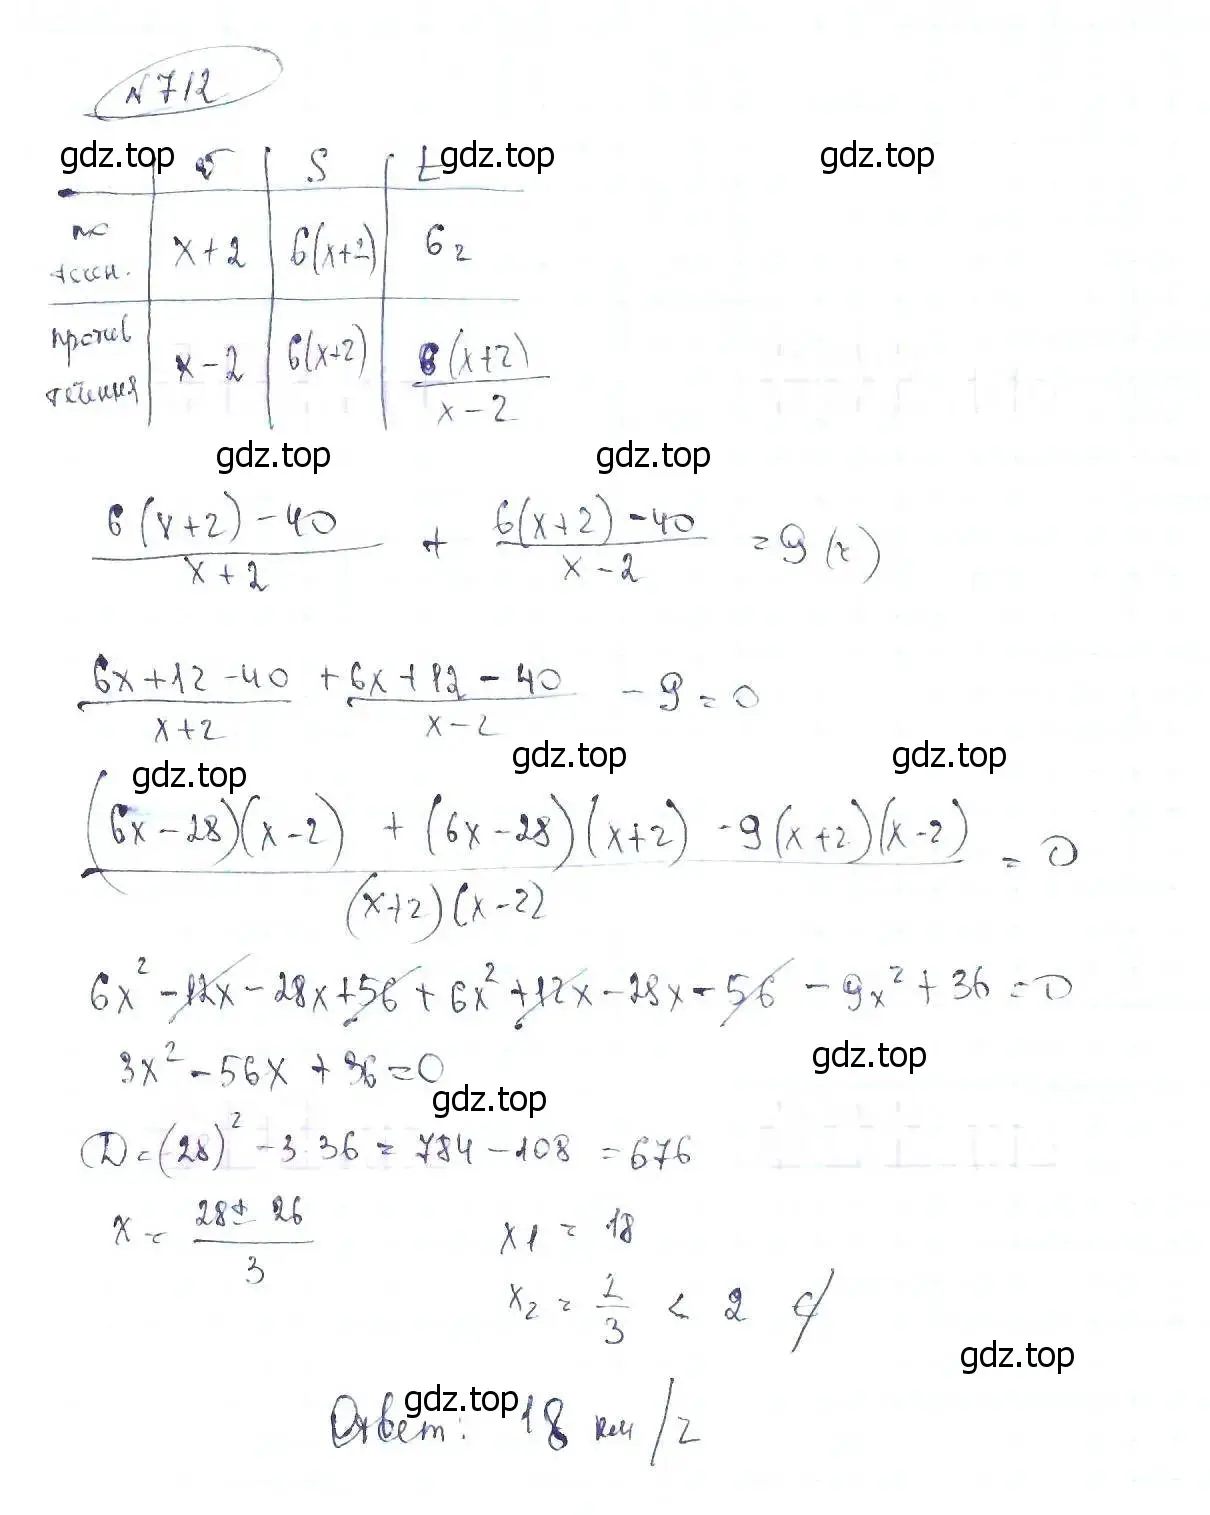 N 712
gdz.top gdz.top gdz.top
v | S | t
по течен. | x+2 | 6(x+2) | 6 г
против течения | x-2 | 6(x+2) | 6(x+2)/(x-2)
gdz.top gdz.top
(6(x+2)-40)/(x+2) + (6(x+2)-40)/(x-2) = 9 (г)
(6x+12-40)/(x+2) + (6x+12-40)/(x-2) - 9 = 0
gdz.top gdz.top gdz.top
((6x-28)(x-2) + (6x-28)(x+2) - 9(x+2)(x-2))/((x+2)(x-2)) = 0
6x² - 12x - 28x + 56 + 6x² + 12x - 28x - 56 - 9x² + 36 = 0
gdz.top
3x² - 56x + 36 = 0
gdz.top
D = (28)² - 3·36 = 784 - 108 = 676
x = (28 ± 26)/3 x1 = 18
x2 = 2/3 < 2 ∉
gdz.top
gdz.top
Ответ: 18 км/г